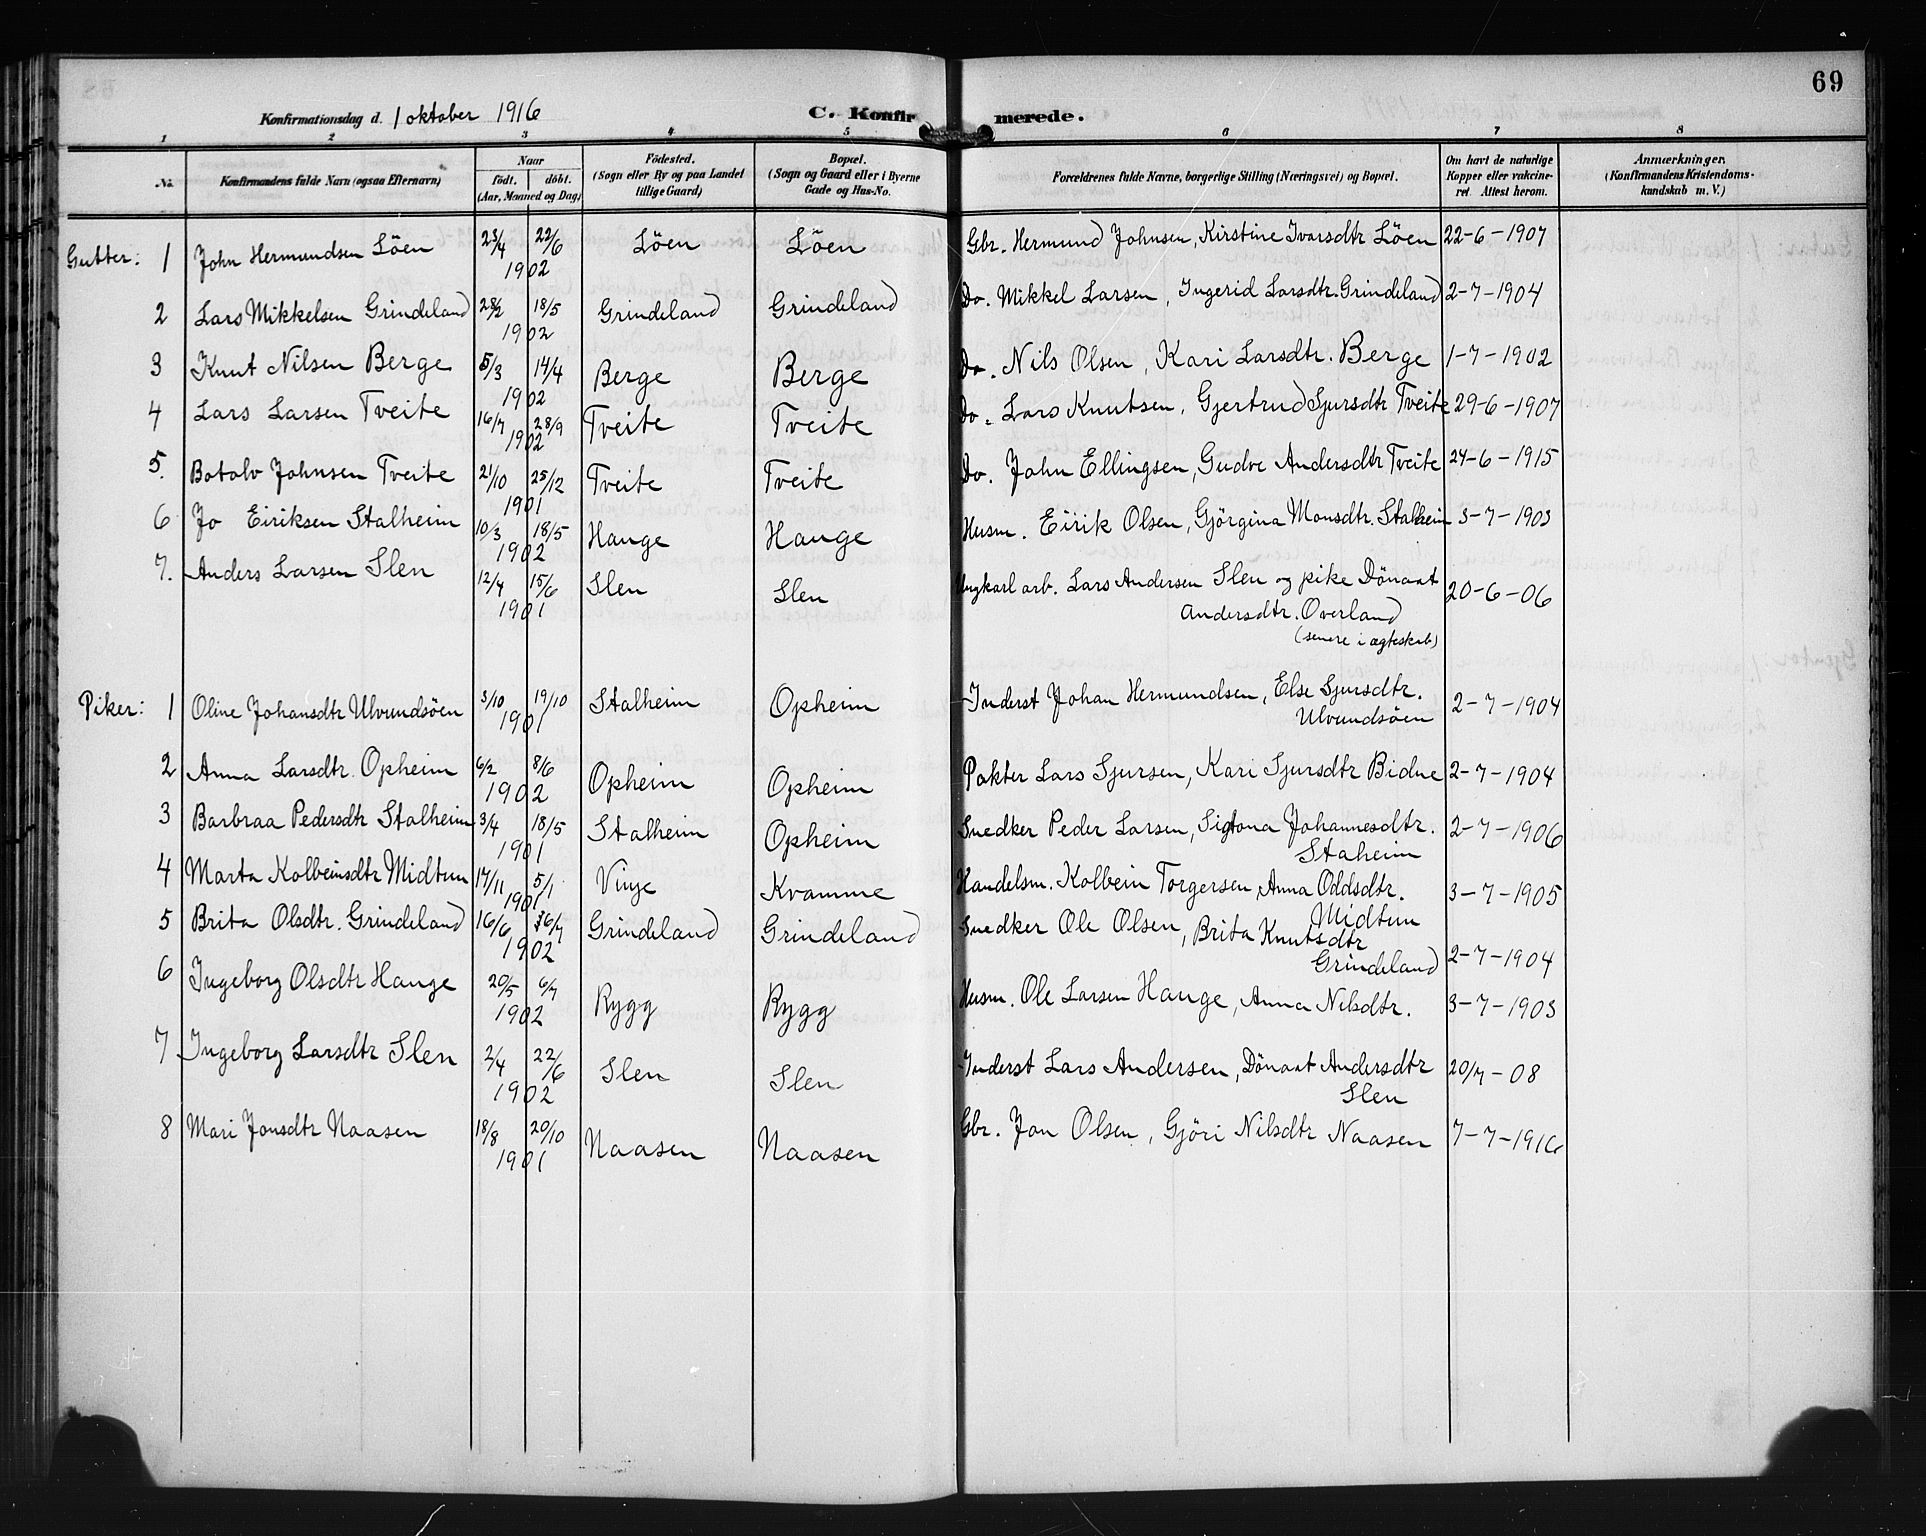 69
Konfirmationsdag d. 1 oktober 1916 C. Konfirmerede.
1 2 3 4 5 6 7 8
No. Konfirmandens fulde Navn (ogsaa Efternavn) Naar födt. döbt. (Aar, Maaned og Dag) Födested. (Sogn eller By og paa Landet tillige Gaard) Bopæl. (Sogn og Gaard eller i Byerne Gade og Hus-No. Forældrenes fulde Navne, borgerlige Stilling (Næringsvei) og Bopæl. Om havt de naturlige Kopper eller vakcineret. Attest herom. Anmærkninger. (Konfirmandens Kristendomskundskab m. V.)
Gutter: 1 John Hermundsen Löen 23/4 22/6 1902 Löen Löen Gbr. Hermund Johnsen, Kirstine Ivarsdtr Löen 22-6-1907
2 Lars Mikkelsen Grindeland 28/2 18/5 1902 Grindeland Grindeland Do. Mikkel Larsen, Ingerid Larsdtr. Grindeland 2-7-1904
3 Knut Nilsen Berge 5/3 14/4 1902 Berge Berge Do. Nils Olsen, Kari Larsdtr. Berge 1-7-1902
4 Lars Larsen Tveite 16/7 28/9 1902 Tveite Tveite Do. Lars Knutsen, Gjertrud Sjursdtr Tveite 29-6-1907
5. Botolv Johnsen Tveite 21/10 25/12 1901 Tveite Tveite Do. John Ellingsen, Gudve Andersdtr Tveite 24-6-1915
6 Jo Eiriksen Stalheim 10/3 18/5 1902 Hauge Hauge Husm. Eirik Olsen, Gjörgina Monsdtr. Stalheim 3-7-1903
7. Anders Larsen Slen 12/4 15/6 1901 Slen Slen Ungkarl arb. Lars Andersen Slen og pike Dönaat 20-6-06
Andersdtr. Overland
(senere i ægteskab)
Piker: 1 Oline Johansdtr Ulvundsöen 3/10 19/10 1901 Stalheim Opheim Inderst Johan Hermundsen, Else Sjursdtr. 2-7-1904
Ulvundsöen
2 Anna Larsdtr. Opheim 6/2 8/6 1902 Opheim Opheim Pakter Lars Sjursen, Kari Sjursdtr Bidne 2-7-1904
3 Barbraa Pedersdtr Stalheim 3/4 18/5 1901 Stalheim Opheim Snedker Peder Larsen, Sigtona Johannesdtr. 2-7-1906
Staheim
4 Marta Kolbeinsdtr Midtun 17/11 5/1 1901 Vinje Kvamme Handelsm. Kolbein Torgersen, Anna Oddsdtr. 3-7-1905
Midtun
5 Brita Olsdtr. Grindeland 16/6 /7 1902 Grindeland Grindeland Snedker Ole Olsen, Brita Knutsdtr
Grindeland 2-7-1904
6 Ingeborg Olsdtr Hauge 20/5 6/7 1902 Rygg Rygg Husm. Ole Larsen Hauge, Anna Nilsdtr. 3-7-1903
7 Ingeborg Larsdtr Slen 2/4 22/6 1902 Slen Slen Inderst Lars Andersen, Dönaat Andersdtr 20/7-08
Slen
8 Mari Jonsdtr Naasen 18/8 20/10 1901 Naasen Naasen Gbr. Jon Olsen, Gjöri Nilsdtr Naasen 7-7-1916